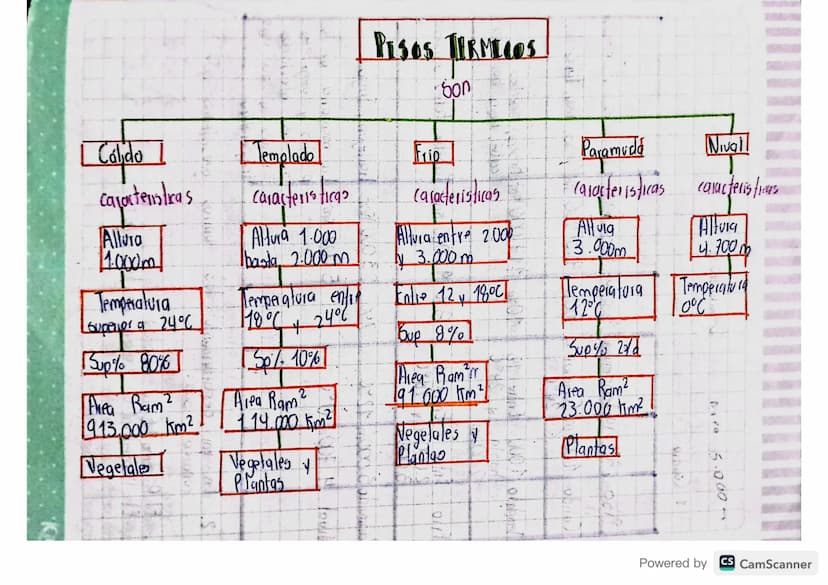 PISOS TERMICOS
son
Cálido
características
Altura
1.000m
Temperatura
superior a 24°C
Sup% 80%
Area Ram²
913,000 Km²
Vegetales
Templado
características
Altura 1.000
hasta 2.000 m
Temperatura entre
18°C y 24°C
Sp% 10%
Area Ram²
114.000 Km²
Vegetales y
Plantas
Frio
características
Altura entre 2.000
y 3.000 m
Entre 12 y 18°C
Sup 8%
Area Ram²
91 000 Km²
Vegetales y
Plantas
Paramudo
características
Altura
3.000m
Temperatura
12°C
Sup%
Area Ram²
23.000 Km²
Plantas
Nival
características
Altura
4.700m
Temperatura
0°C
Powered by CS CamScanner